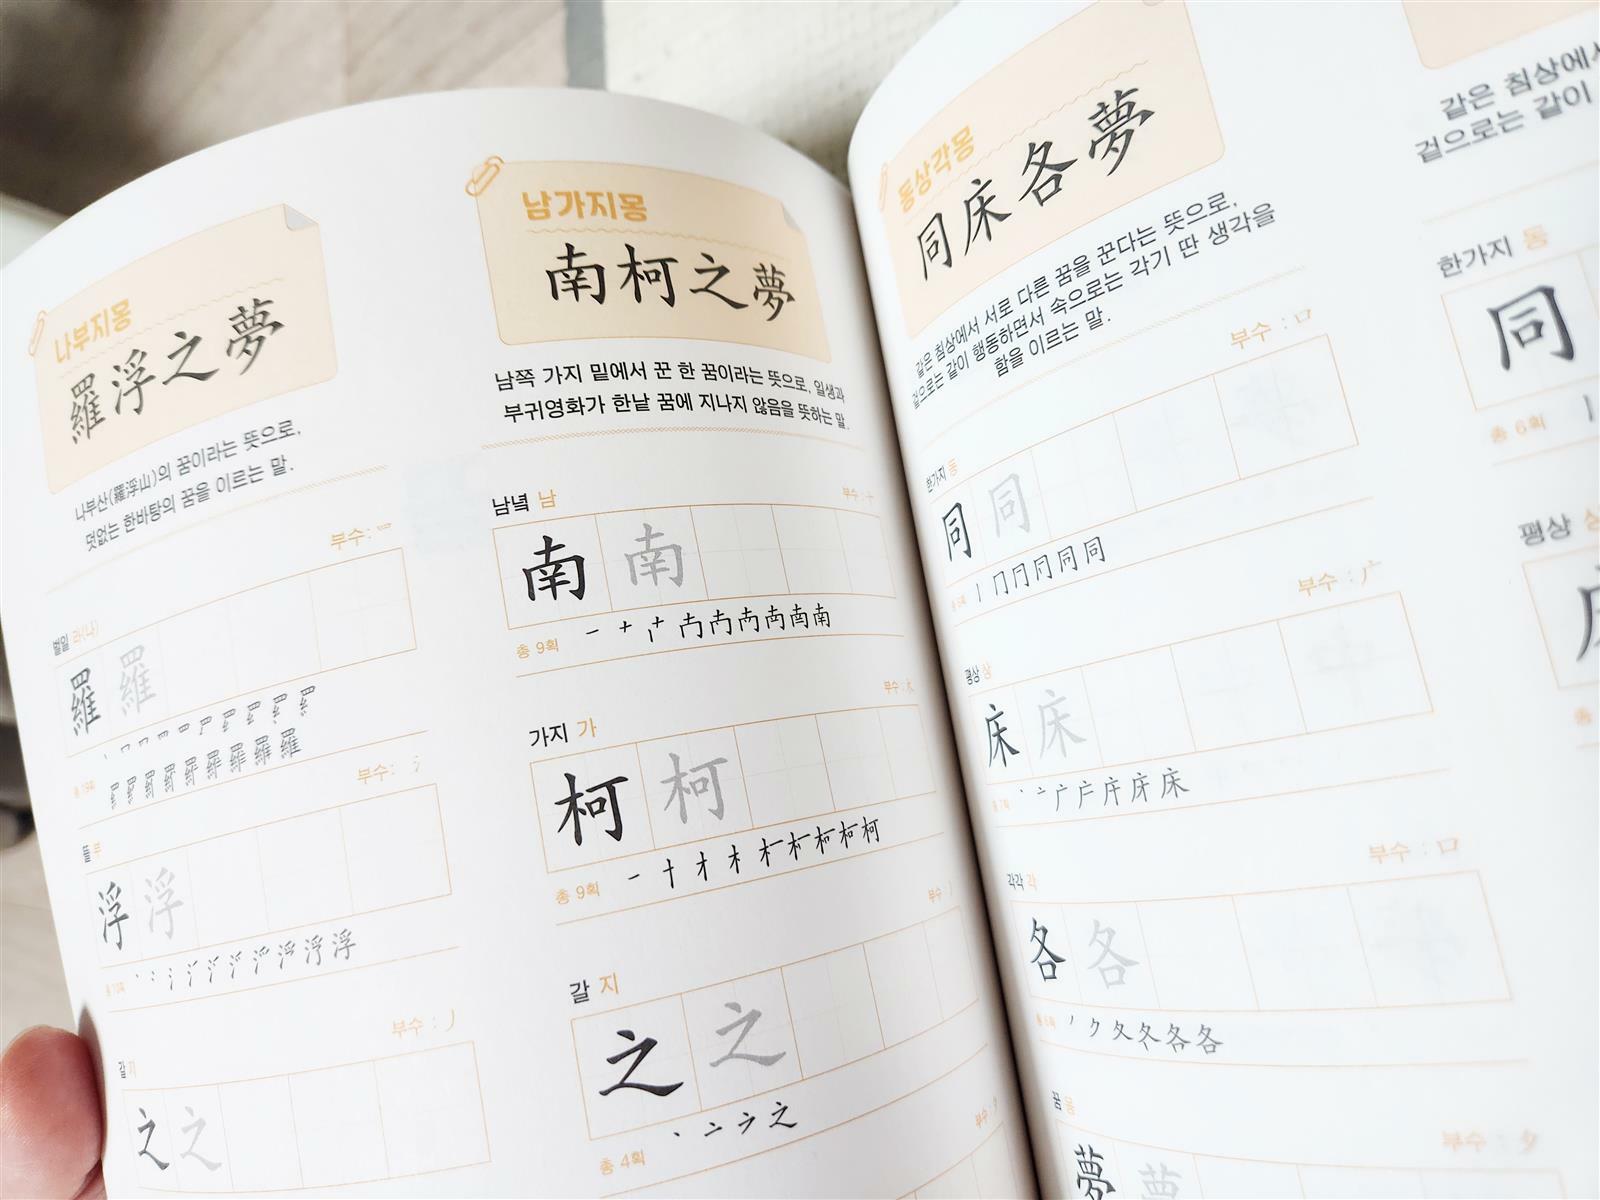 나부지몽
羅浮之夢
나부산(羅浮山)의 꿈이라는 뜻으로,
덧없는 한바탕의 꿈을 이르는 말.
벌일 라(나)
부수: 罒
羅 羅
총 19획
뜰 부
부수: 氵
浮 浮
총 10획
갈 지
부수 : 丿
之 之
남가지몽
南柯之夢
남쪽 가지 밑에서 꾼 한 꿈이라는 뜻으로, 일생과
부귀영화가 한낱 꿈에 지나지 않음을 뜻하는 말.
남녘 남
부수 : 十
南 南
총 9획
가지 가
부수 : 木
柯 柯
총 9획
갈 지
부수 : 丿
之 之
총 4획
부수 : 夕
동상각몽
同床各夢
같은 침상에서 서로 다른 꿈을 꾼다는 뜻으로,
겉으로는 같이 행동하면서 속으로는 각기 딴 생각을
함을 이르는 말.
한가지 동
부수 : 口
同 同
총 6획
평상 상
부수 : 广
床 床
총 7획
각각 각
부수 : 口
各 各
총 6획
꿈 몽
부수 : 夕
夢 夢
같은 침상에서
겉으로는 같이
한가지 동
同
총 6획
평상 상